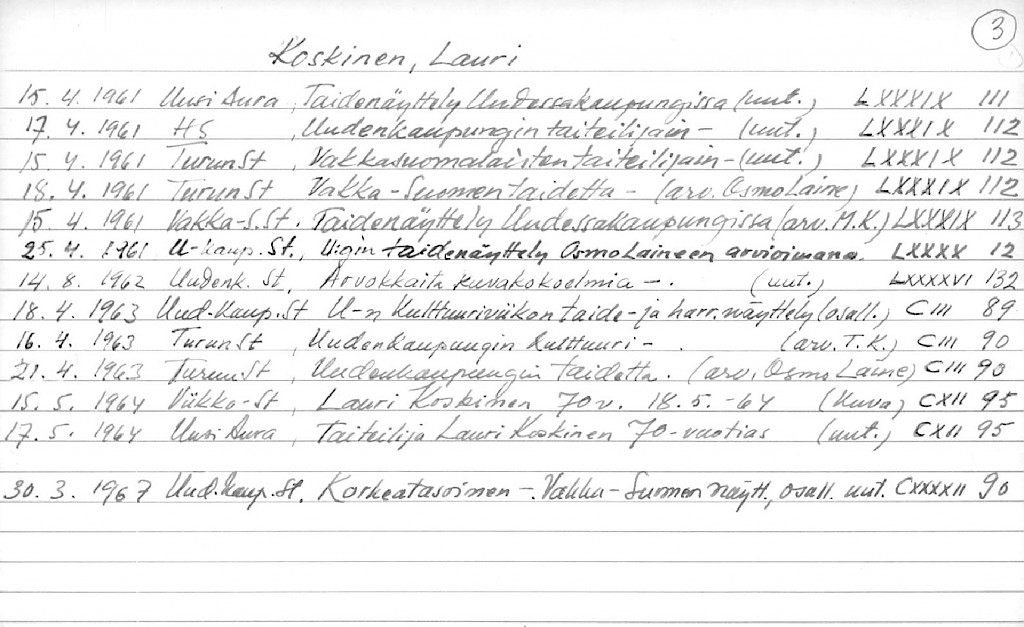 3
Koskinen, Lauri
15. 4. 1961 Uusi Aura, Taidenäyttely Uudessakaupungissa (uut.) LXXXIX 111
17. 4. 1961 HS, Uudenkaupungin taiteilijain - (uut.) LXXXIX 112
15. 4. 1961 TurunSt, Vakkasuomalaisten taiteilijain - (uut.) LXXXIX 112
18. 4. 1961 TurunSt Vakka-Suomen taidetta - (arv. Osmo Laine) LXXXIX 112
15. 4. 1961 Vakka-S.St. Taidenäyttely Uudessakaupungissa (arv. M.K.) LXXXIX 113
25. 4. 1961 U-kaup. St., U:gin taidenäyttely Osmo Laineen arvioimana. LXXXX 12
14. 8. 1962 Uudenk. St, Arvokkaita kuvakokoelmia -. (uut.) LXXXXVI 132
18. 4. 1963 Uud.kaup.St U-n Kulttuuriviikon taide- ja harr.näyttely (osall.) CIII 89
16. 4. 1963 TurunSt, Uudenkaupungin kulttuuri - . (arv. T.K.) CIII 90
21. 4. 1963 TurunSt, Uudenkaupungin taidetta. (arv. Osmo Laine) CIII 90
15. 5. 1964 Viikko-St, Lauri Koskinen 70 v. 18. 5. -64 (kuva) CXII 95
17. 5. 1964 Uusi Aura, Taiteilija Lauri Koskinen 70-vuotias (uut.) CXII 95
30. 3. 1967 Uud.kaup.St. Korkeatasoinen -. Vakka-Suomen näytt., osall. uut. CXXXXII 90